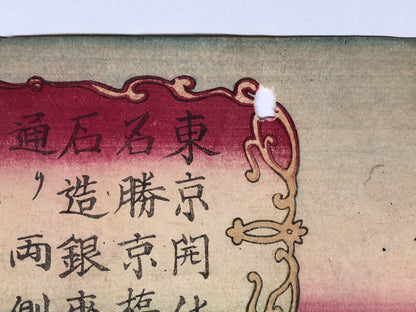 東京開化
名勝京橋
石造銀座
通り両側